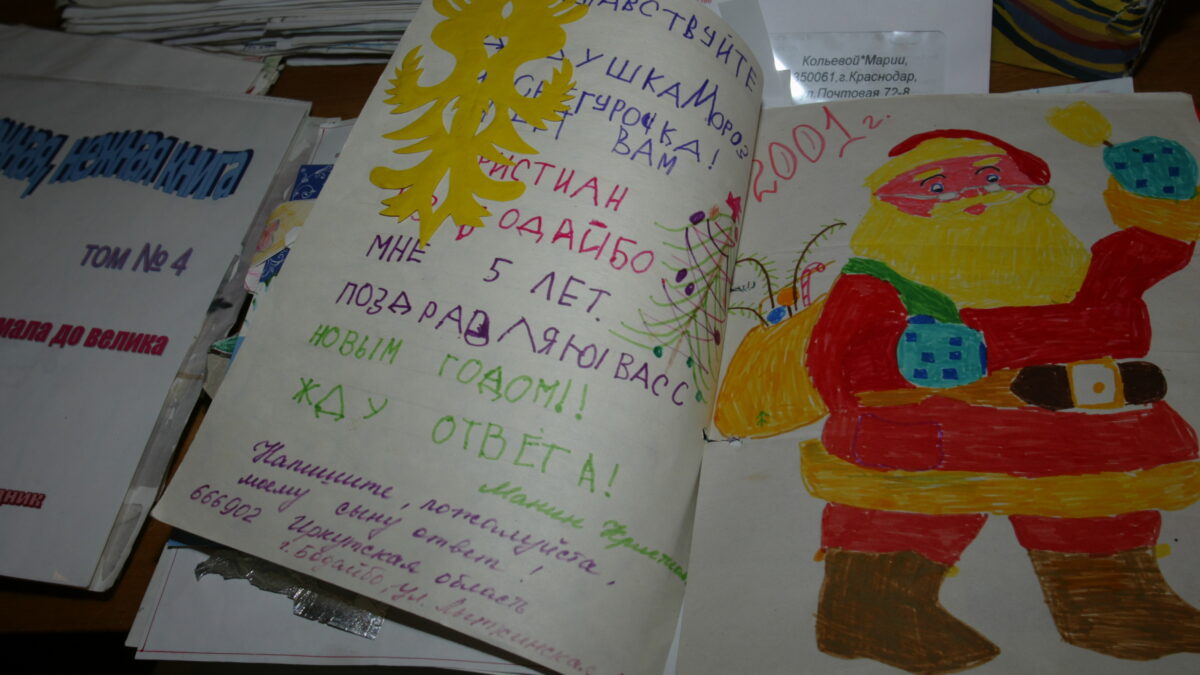 том № 4
мала до велика
нежная книга
ЗДРАВСТВУЙТЕ
ДУШКА МОРОЗ
СНЕГУРОЧКА!
ВАМ
РИСТИАН
ОДАЙБО
МНЕ 5 ЛЕТ.
ПОЗДРАВЛЯЮ ВАСС
НОВЫМ ГОДОМ!!
ЖДУ ОТВЕТА!
Манин
Напишите, пожалуйста,
моему сыну ответ!
666902 Иркутская область
г. Бодайбо, ул.
2001 г.
Кольевой*Марии,
350061, г.Краснодар,
ул.Почтовая 72-8